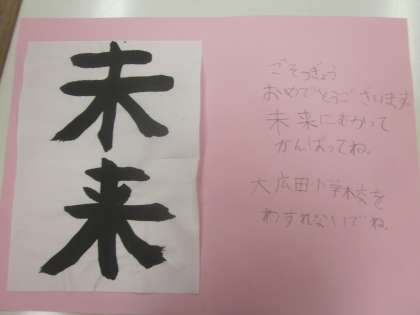 未来
ごそつぎょう
おめでとうございます。
未来にむかって
がんばってね。
大広田小学校を
わすれないでね。